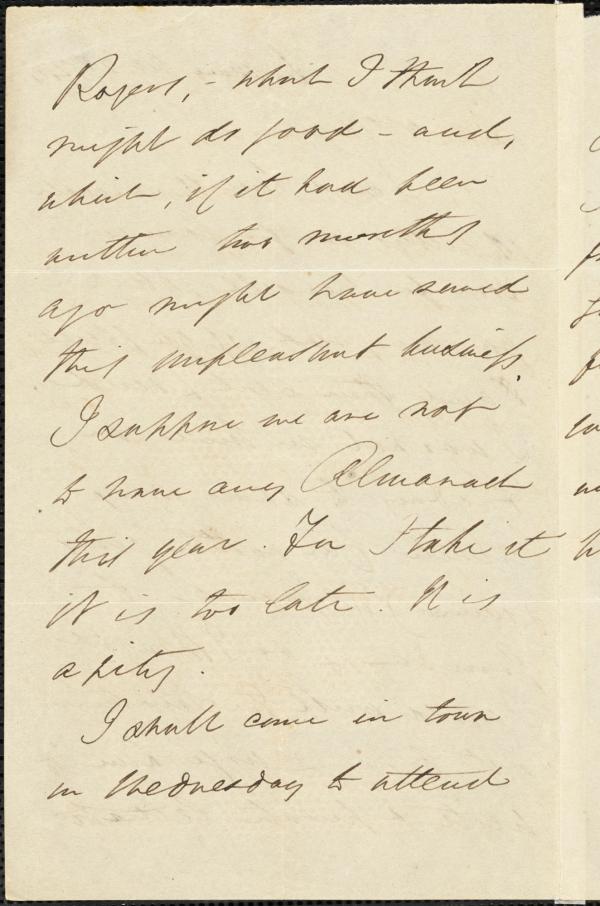 Rogers, - which I think
might do good - and,
which, if it had been
written two months
ago might have saved
this unpleasant business.
I suppose we are not
to have any Almanack
this year. For I take it
it is too late. It is
a pity.
I shall come in town
on Wednesday to attend